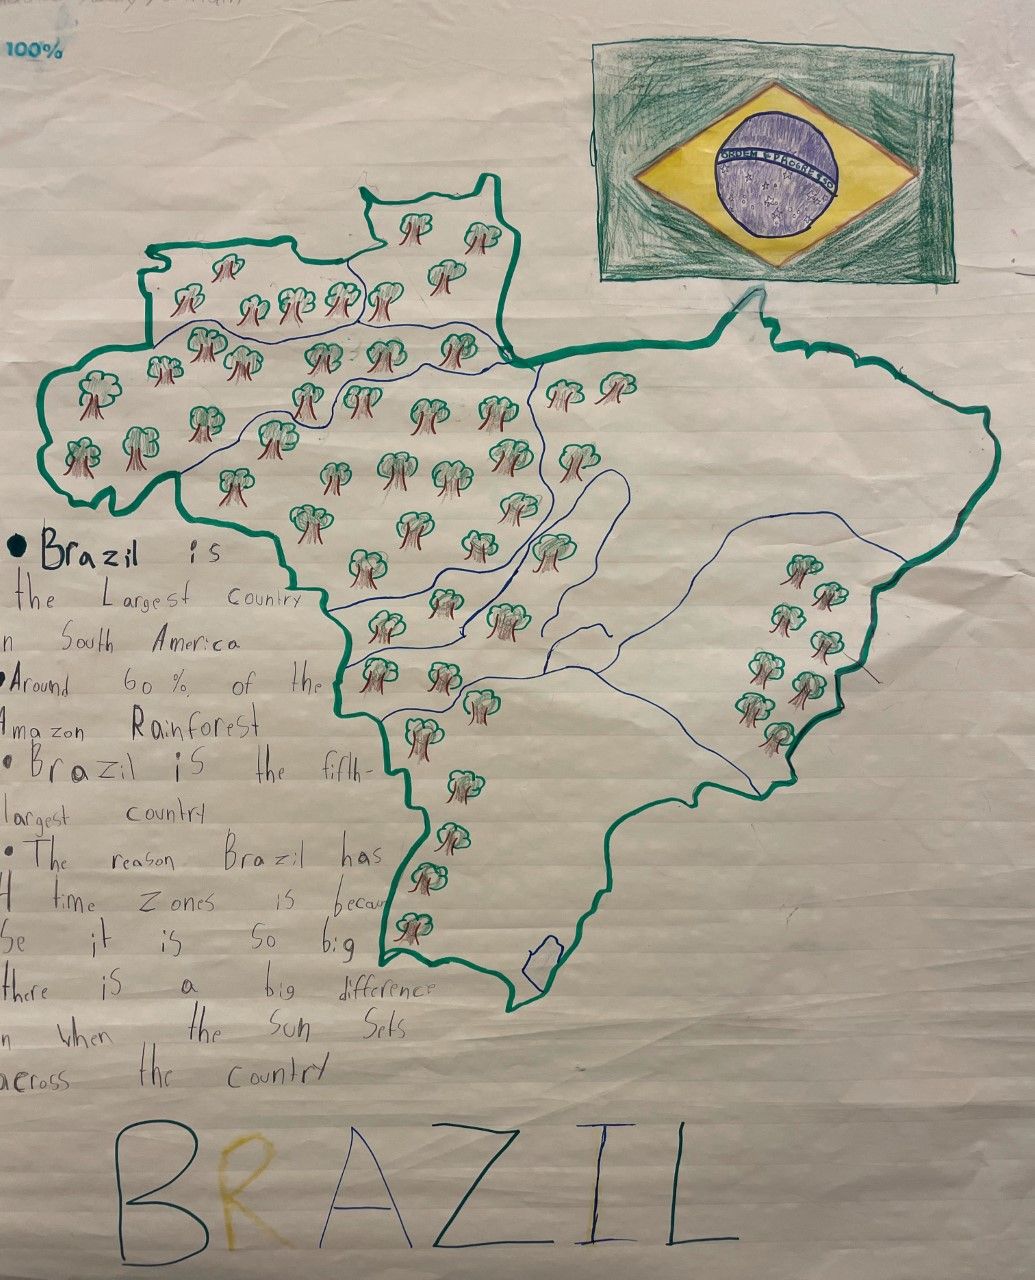 100%
ORDEM E PROGRESSO
• Brazil is
the Largest country
n South America
• Around 60% of the
Amazon Rainforest
• Brazil is the fifth-
largest country
• The reason Brazil has
4 time zones is becau
se it is so big
there is a big difference
n when the Sun Sets
across the country
BRAZIL